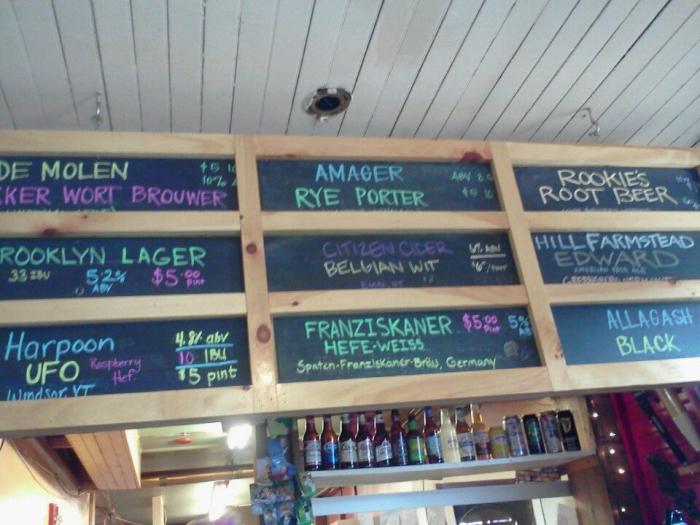 DE MOLEN
$5.
10%
KER WORT BROUWER
AMAGER
ABV
RYE PORTER
ROOKIE'S
ROOT BEER
ROOKLYN LAGER
33 IBU
5.2%
ABV
$5.00
pint
CITIZEN CIDER
BELGIAN WIT
6% ABV
HILL FARMSTEAD
EDWARD
AMERICAN PALE ALE
Harpoon
UFO
Raspberry
Hef.
Windsor, VT
4.8% abv
10 IBU
$5 pint
FRANZISKANER
HEFE-WEISS
$5.00
pint
5%
Spaten-Franziskaner-Bräu, Germany
ALLAGASH
BLACK